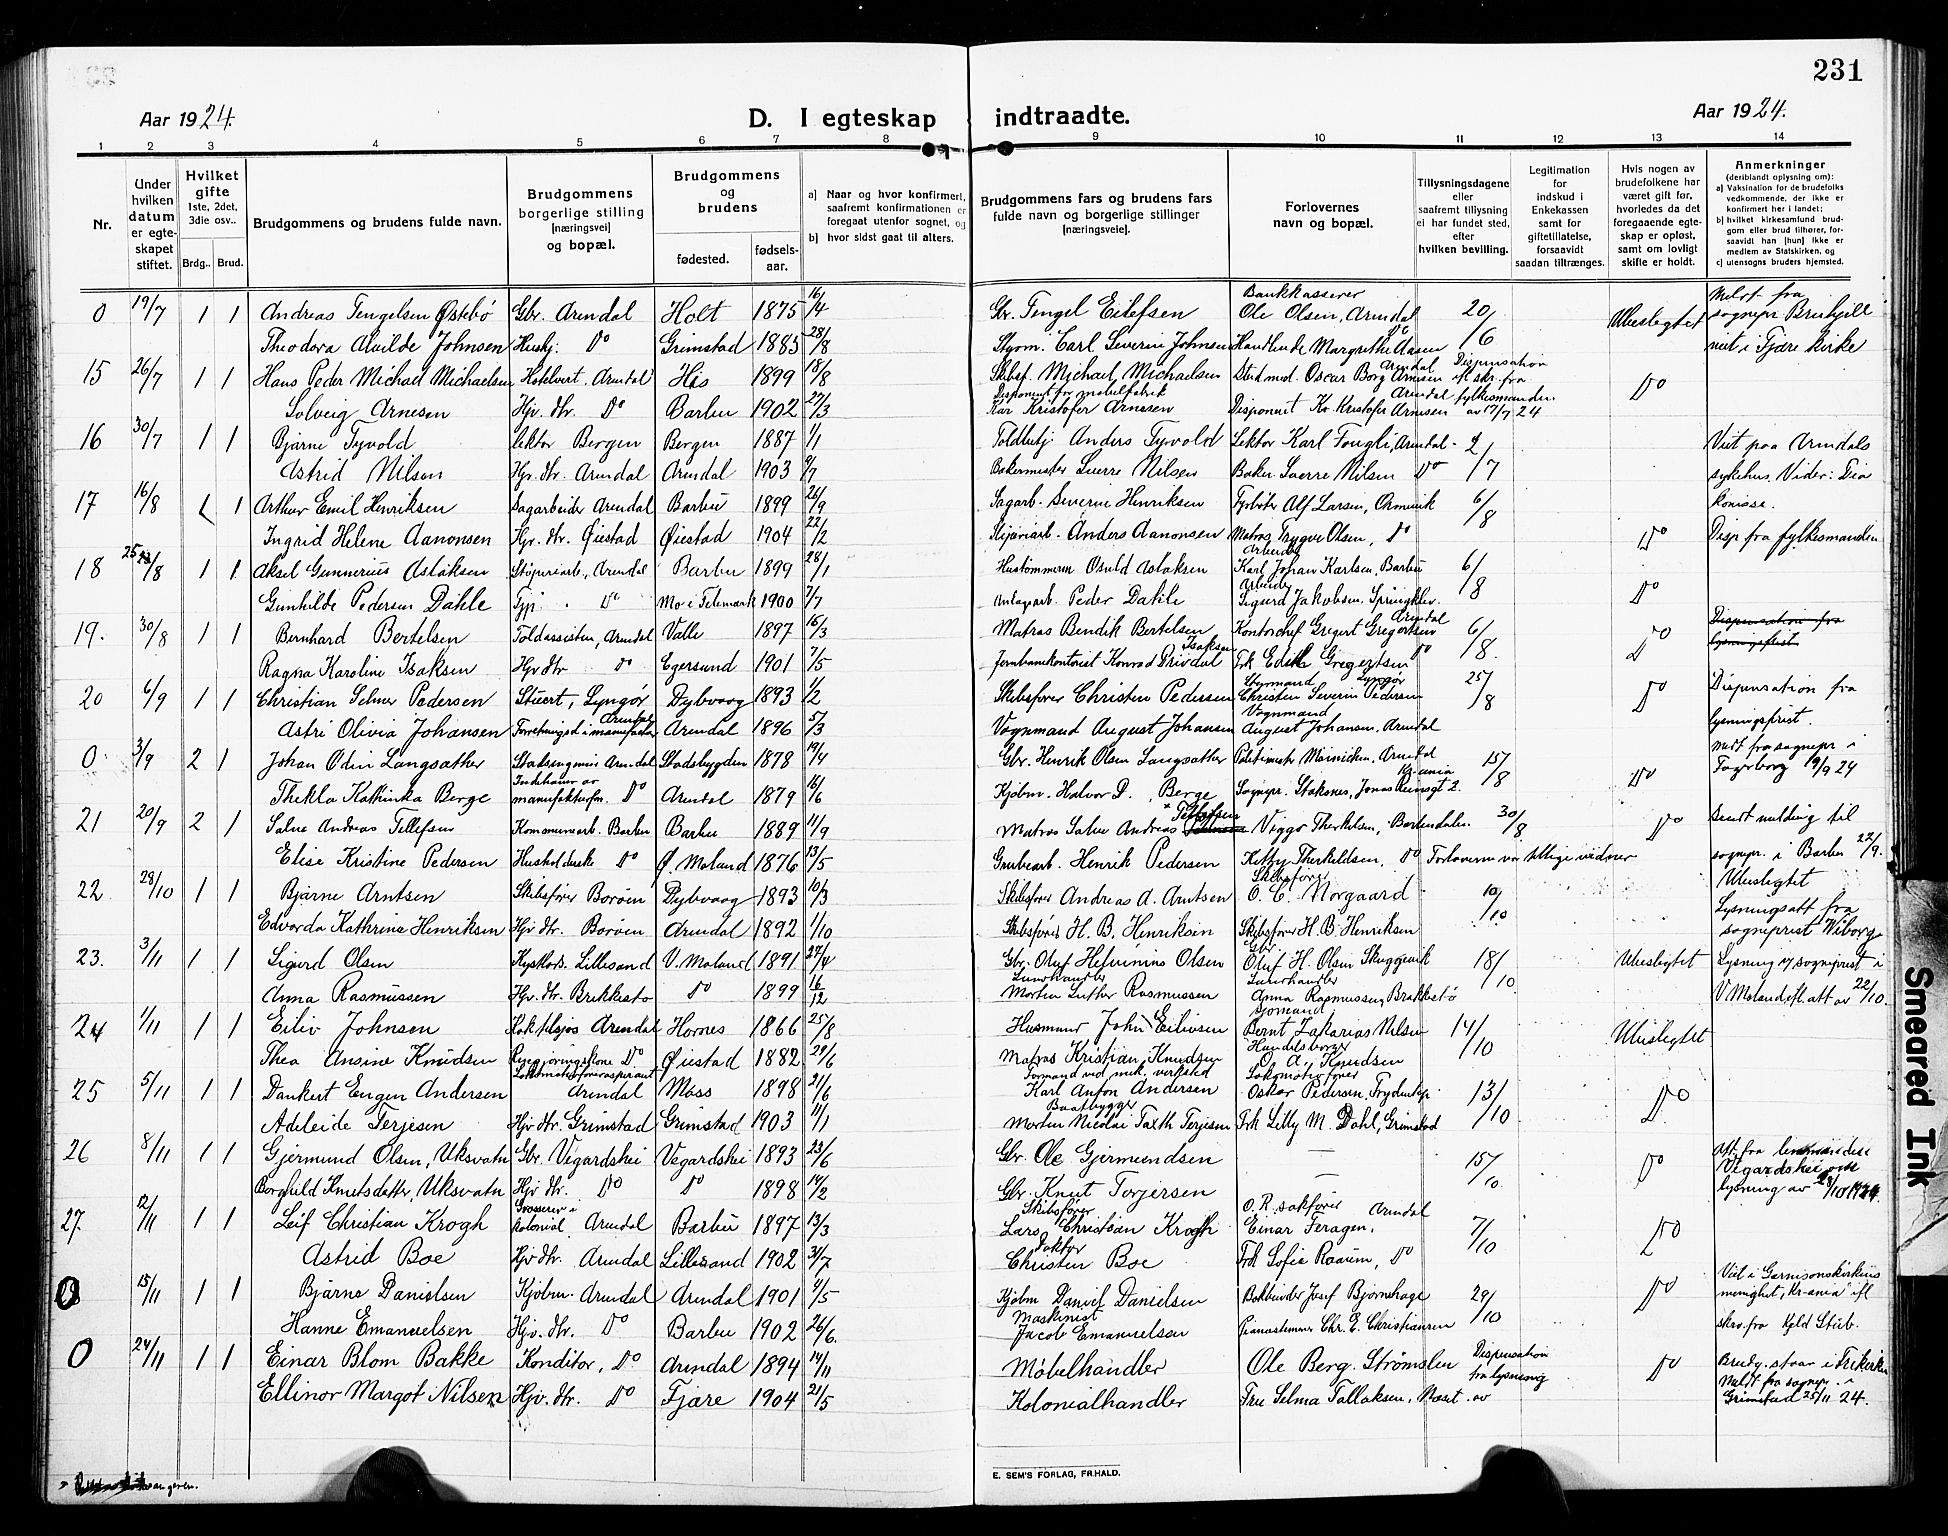 231
Aar 1924.
D. I egteskap indtraadte.
Aar 1924.
1 2 3 4 5 6 7 8 9 10 11 12 13 14
Nr.
Under hvilken datum er egteskapet stiftet.
Hvilket gifte 1ste, 2det, 3die osv..
Brdg.. Brud.
Brudgommens og brudens fulde navn.
Brudgommens borgerlige stilling [næringsvei] og bopæl.
Brudgommens og brudens
fødested. fødsels-aar.
a) Naar og hvor konfirmert, saafremt konfirmationen er foregaat utenfor sognet, og
b) hvor sidst gaat til alters.
Brudgommens fars og brudens fars fulde navn og borgerlige stillinger [næringsveie].
Forlovernes navn og bopæl.
Tillysningsdagene eller saafremt tillysning ei har fundet sted, efter hvilken bevilling.
Legitimation for indskud i Enkekassen samt for giftetillatelse, forsaavidt saadan tiltrænges.
Hvis nogen av brudefolkene har været gift før, hvorledes da det foregaaende egteskap er opløst, samt om lovligt skifte er holdt.
Anmerkninger (deriblandt oplysning om):
a) Vaksination for de brudefolks vedkommende, der ikke er konfirmert her i landet;
b) hvilket kirkesamfund brudgom eller brud tilhører, forsaavidt han [hun] ikke er medlem av Statskirken, og
c) utensogns bruders hjemsted.
0 19/7 1 1 Andreas Tengelsen Østebø Gbr. Arendal Holt 1875 16/4 Gbr. Tengel Eilefsen Bankkasserer Ole Olsen, Arendal 20/6 Ubeslegtet Meldt fra sognepr Bruhjell
Theodora Alvilde Johnsen Hushj. Do Grimstad 1885 28/8 Styrm. Carl Severin Johnsen Handlende Margrethe Aasen Do viet i Fjære kirke
15 26/7 1 1 Hans Peder Michael Michaelsen Hotelvert. Arendal His 1899 18/8 Skibsf. Michael Michaelsen Stud med. Oscar Borg Arnesen Arendal Dispensation efl skr. fra fylkesmanden av 17/7 24 Do
Solveig Arnesen Hjv. dtr. Do Barbu 1902 27/3 Disponent for møbelfabrik Kar Kristofer Arnesen Disponent Kr Kristofer Arnesen Arendal
16 30/7 1 1 Bjarne Tyvold lektor Bergen Bergen 1887 1/1 Toldbetj Anders Tyvold Lektor Karl Fongli, Arendal 2/7 Viet paa Arendals
Astrid Nilsen Hjv. dtr. Arendal Arendal 1903 Bakermester Sverre Nilsen Baker Sverre Nilsen Do sykehus. Vider: Dia
17 16/8 1 Arthur Emil Henriksen Sagarbeider Arendal Barbu 1899 26/9 Sagarb. Severin Henriksen Fyrbøter Alf Larsen, 6/8 konisse.
Ingrid Helene Aanonsen Hjv. dtr. Øiestad Øiestad 1904 22/2 Anders Aanonsen Matros Trygve Olsen, Do Do Disp fra fylkesmanden
18 25/8 1 1 Aksel Gunnerius Aslaksen Støperiarb., Arendal Barbu 1899 28/1 Hustømmerm Osvld Aslaksen Arbeider Karl Johan Karlsen, Barbu 6/8
Gunhilde Pedersen Dahle Tjp. Do Mo i Telemark 1900 7/7 Peder Dahle Arbeider Sigurd Jakobsen. Springklev. Do
19. 30/8 1 1 Bernhard Bertelsen Toldassistent, Arendal Valle 1897 16/3 Matros Bendik Bertelsen Kontorchef Gregert Gregertsen Arendal 6/8 Do Dispensation fra lysningsfrist
Ragna Karoline Isaksen Hjv dtr Do Egersund 1901 7/5 Jernbanekontorist Konrad Isaksen Frk Edith Gregertsen Do
20 6/9 1 1 Christian Selmer Pedersen Stuert, Lyngør Dybvaag 1893 1/2 Skibsfører Christen Pedersen Styrmand Lyngør Christen Severin Pedersen 25/8 Do Dispensation fra lysningsfrist.
Astri Olivia Johansen Forretningsd. i manufactur Arendal Arendal 1896 5/3 Vognmand August Johansen Vognmand August Johansen, Arendal
0 3/9 2 1 Johan Odin Langsather Arendal Stadsbygden 1878 19/4 Gbr. Henrik Olsen Langsather Politimester Meinicken, Arendal 15/8 Do Meldt fra sognepr i
Thekla Kathinka Berge Indehaver av manufakturfor. Do Arendal 1879 16/6 Kjøbm. Halvor P. Berge Sognepr. Stoksnes, Jonas Reinsgt 2. Kr-ania Fagerborg 9/9 24
21 20/9 2 1 Salve Andreas Tellefsen Kommunearb. Barbu Barbu 1889 11/9 Matros Salve Andreas Tellefsen Viggo Therkelsen, Barbudalen 30/8 Do Sendt melding til
Elise Kristine Pedersen Husholderske Do Ø. Moland 1876 13/5 Grubearb. Henrik Pedersen Kitty Therkeldsen, Do Forloverne var tillige vidner sognepr. i Barbu 22/9.
22 28/10 1 1 Bjarne Arntsen Skibsfører Borøen Dybvaag 1893 10/3 Skibsfører Andreas A. Arntsen Skibsfører O. C. Norgaard 10/10 Ubeslegtet
Edvarda Kathrine Henriksen Hjv dtr. Borøen Arendal 1892 1/10 Skibsfører H. B. Henriksen Skibsfører H. B. Henriksen Lysningsatt fra sogneprest Wiborg
23. 3/11 1 1 Sigurd Olsen Lillesand V. Moland 1891 27/4 Gbr. Oluf Olsen Gbr. Oluf H. Olsen Skuggevik 18/10 Ubeslegtet Lysning v/ sogneprest i
Anna Rasmussen Hjv. dtr. Brekkestø Do 1899 16/12 Morten Luther Rasmussen Anna Rasmussen, Brækkestø V. Moland efl. att av 22/10.
24 1/11 1 1 Eiliv Johnsen Kok tilsjøs Arendal Hornes 1866 25/8 Husmand John Eilivsen Sjømand Bernt Zakarias Nilsen 14/10 Ubeslegtet
Thea Ansine Knudsen Rengjøringskone Do Øiestad 1882 29/6 Matros Kristian Knudsen Handelsborger O. A. Knudsen
25 5/11 1 1 Dankert Eugen Andersen Lokomotivfyrerasspirant Arendal Moss 1898 21/6 Formand ved mek. verksted Karl Anton Andersen Lokomotivfører Oskar Pedersen, 13/10 Do
Adeleide Terjesen Hjv dtr. Grimstad Grimstad 1903 11/1 Baatbygger Morten Nicolai Faxth Terjesen Frk Lilly M. Dahl, Grimstad
26 8/11 1 1 Gjermund Olsen, Uksvatn Gbr. Vegardshei Vegardshei 1893 23/6 Gbr. Ole Gjermundsen — 15/10 Do Att. fra lensmanden i Vegardshei om
Borghild Knutsdatter, Uksvatn Hjv dtr. Do Do 1898 14/2 Gbr. Knut Torjersen — lysning av 28/10 1924.
27. 12/11 1 1 Leif Christian Krogh Grosserer i kolonial Arendal Barbu 1897 13/3 Skibsfører Lars Christian Krogh O. R. sakfører Arendal Einar Feragen. 7/10 Do
Astrid Boe Hjv dtr. Arendal Lillesand 1902 31/7 Doktor Christen Boe Frk Sofie Raaum, Do
0 15/11 1 1 Bjarne Danielsen Kjøbm. Arendal Arendal 1901 4/5 Kjøbm Daniel Danielsen Bokbinder Josef Bjørnshage 29/10 Do Viet i Garnisonskirkens menighet, Kr-ania efl
Hanne Emanuelsen Hjv. dtr. Do Barbu 1902 26/6. Maskinist Jacob Emanuelsen Pianostemmer Chr. E. Christiansen skr. fra Kjeld Stub.
0 24/11 1 1 Einar Blom Bakke Konditor, Do Arendal 1894 14/11 Møbelhandler Ole Berg. Strømslen Dispensation fra lysning Do Brudg. staar i Frikirken
Ellinor Margot Nilsen Hjv. dtr. Do Fjære 1904 21/5 Kolonialhandler Fru Selma Tallaksen, Næset av Meldt fra sognepr. i Grimstad 25/11 24.
E. SEM'S FORLAG, FR.HALD.
Smeared Ink